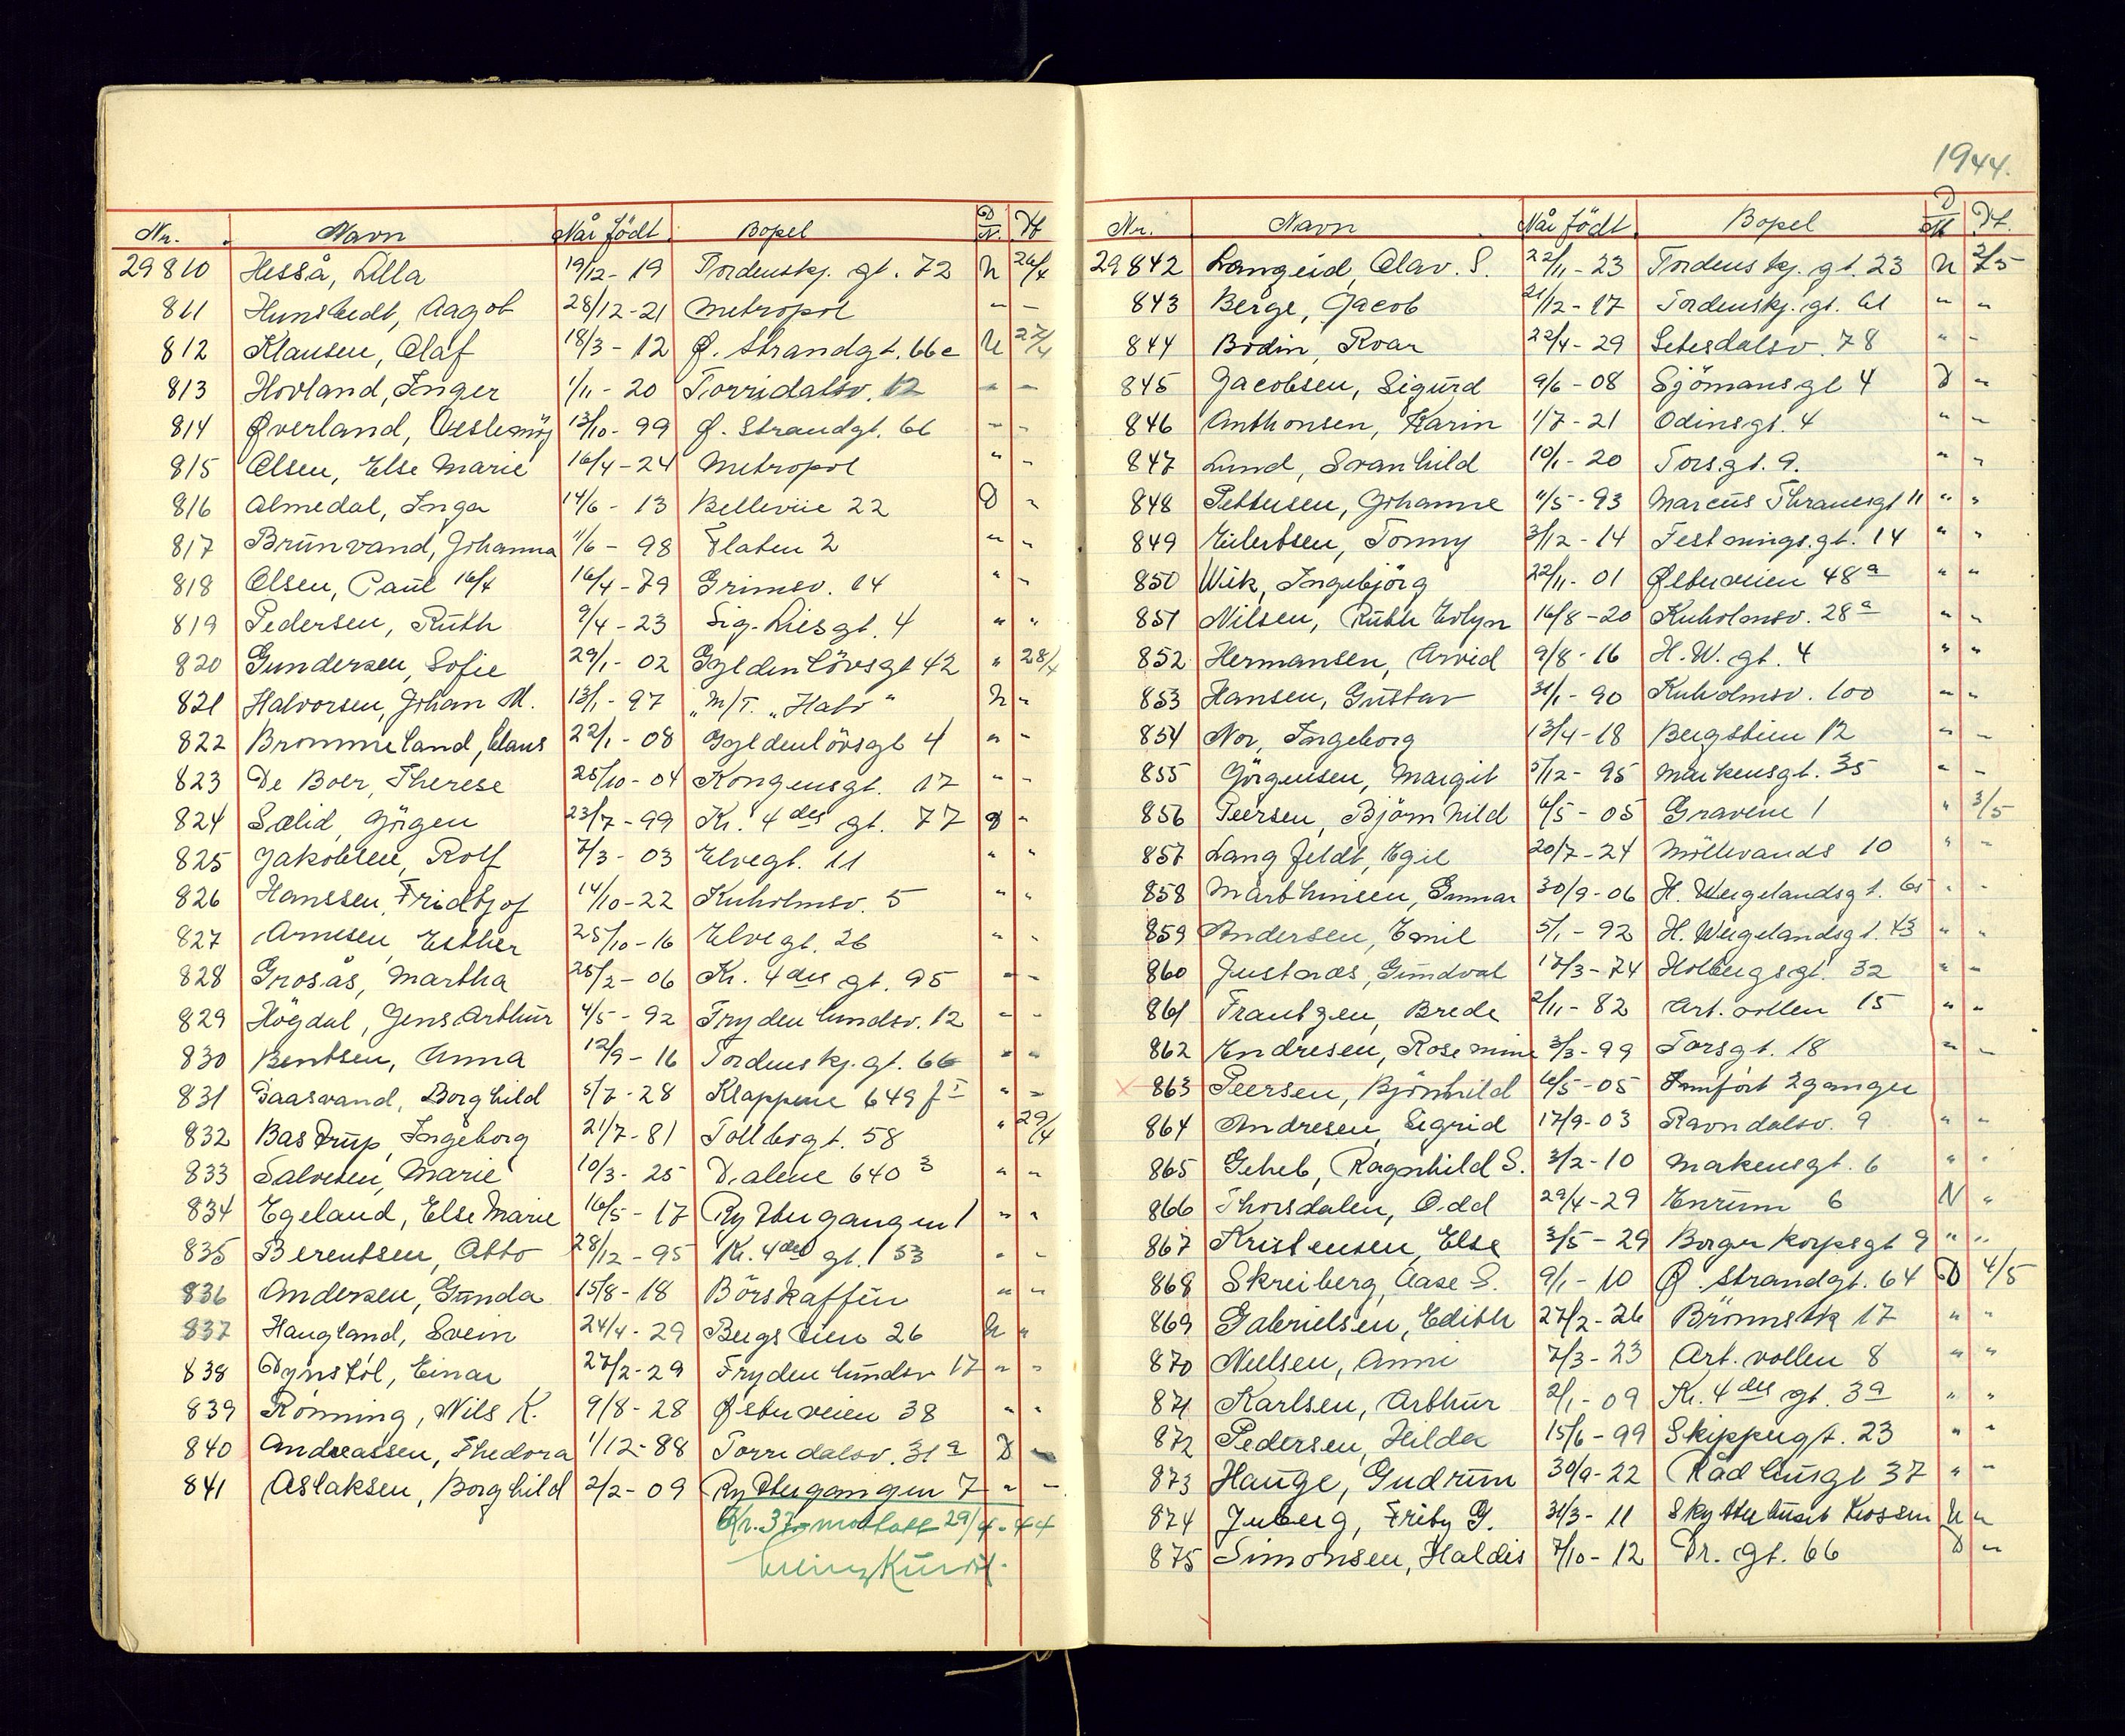 1944.
Nr. Navn Når födt. Bopel D/N. Dt
29810 Hesså, Lilla 19/12-19 Tordenskj. gt. 72 N 26/4
811 Hunstedt, Aagot 28/12-21 Metropol " -
812 Klausen, Olaf 18/3-12 Ø. Strandgt. 66c N 27/4
813 Hovland, Inger 1/11-20 Torridalsv. 12 " -
814 Øverland, 13/10-99 Ø. Strandgt. 66 " -
815 Olsen, Else Marie 16/4-24 Metropol " -
816 Almedal, Inga 14/6-13 Bellevüe 22 D -
817 Brünvand, Johanna 11/6-98 Flaten 2 " -
818 Olsen, Paul 16/4 16/4-79 Grimsv. 14 " -
819 Pedersen, Rüth 9/4-23 Sig. Liesgt. 4 " "
820 Gundersen, Sofie 29/1-02 Gyldenlövsgt 42 " 28/4
821 Halvorsen, Johan M. 13/1-97 "M/T. "Halv" N -
822 Brommeland, Claus 22/1-08 Gyldenlövsgt 4 " -
823 De Boer, Therese 25/10-04 Kongensgt. 17 " -
824 Sælid, Jörgen 23/7-99 Kr. 4des gt. 77 D -
825 Jakobsen, Rolf 7/3-03 Elvegt. 11 " "
826 Hanssen, Fridtjof 14/10-22 Kuholmsv. 5 " "
827 Arnesen, Esther 25/10-16 Elvegt. 26 " "
828 Grosås, Martha 25/2-06 Kr. 4des gt. 95 " -
829 Högdal, Jens Arthür 4/5-92 Frydenlundsv. 12 " -
830 Bentsen, Anna 12/9-16 Tordenskj. gt. 66 " "
831 Gaasvand, Borghild 5/7-28 Klappene 649 f I " -
832 Bastrüp, Ingeborg 21/7-81 Tollbogt. 58 " 29/4
833 Salvesen, Marie 10/3-25 Dalene 640 3 " -
834 Egeland, Else Marie 16/5-17 Ryttergangen 1 " "
835 Berentsen, Otto 28/12-95 Kr. 4des gt. 53 " -
836 Andersen, Günda 15/8-18 Börskaffen " -
837 Haugland, Svein 24/4-29 Bergstien 26 N "
838 Dynstöl, Einar 27/2-29 Frydenlundsv 17 " "
839 Rönning, Nils K. 9/8-28 Østerveien 38 " "
840 Andreassen, Thedora 1/12-88 Torridalsv. 31a D -
841 Aslaksen, Borghild 2/2-09 Ryttergangen 7 " -
Kr. 37,- mottatt 29/4-44
Nr. Navn Når födt. Bopel D/N Dt.
29842 Langeid, Olav. S. 22/11-23 Tordenskj. gt. 23 N 2/5
843 Berge, Jacob 21/12-17 Tordenskj. gt. 61 " "
844 Bodin, Roar 22/4-29 Setesdalsv. 78 " -
845 Jacobsen, Sigurd 9/6-08 Sjömansgt 4 D "
846 Anthonsen, Karin 1/7-21 Odinsgt. 4 " -
847 Lund, Svanhild 10/1-20 Torsgt. 9. " "
848 Pettersen, Johanne 11/5-93 Marcüs Thranesgt 11 " "
849 Eilertsen, Tonny 3/12-14 Festningsgt. 14 " "
850 Wik, Ingebjörg 22/11-01 Østerveien 48a " "
851 Nilsen, Rüth Evlyn 16/8-20 Kuholmsv. 28a " "
852 Hermansen, Arvid 9/8-16 H. W. gt. 4 " "
853 Hansen, Güstav 31/1-90 Kuholmsv. 100 " "
854 Nor, Ingeborg 13/4-18 Bergstien 12 " -
855 Jörgensen, Margit 5/12-95 Markensgt. 35 " -
856 Peersen, Björnhild 6/5-05 Gravene 1 " 3/5
857 Langfeldt, Egil 20/7-24 Möllevands 10 " -
858 Marthinsen, Gunnar 30/9-06 H. Wergelandsgt. 65 " -
859 Andersen, Emil 5/1-92 H. Wergelandsgt. 43 " "
860 Justnæs, Gündvat 17/3-74 Holbergsgt. 32 " -
861 Frantzen, Brede 2/11-82 Art. vollen 15 " "
862 Endresen, Rosemine 3/3-99 Torsgt. 18 " -
x 863 Peersen, Björnhild 6/5-05 Innfört 2 ganger
864 Andresen, Sigrid 17/9-03 Ravndalsv. 9 " -
865 Geheb, Ragnhild S. 3/2-10 Markensgt. 6 " "
866 Thorsdalen, Odd 29/4-29 Enrüm 6 N "
867 Kristensen, Else 3/5-29 Borgerkorpsgt 9 " "
868 Skreiberg, Aase S. 9/1-10 Ø. Strandgt. 64 D 4/5
869 Gabrielsen, Edith 27/2-26 Brönnstk 17 " "
870 Nielsen, Anni 7/3-23 Art. vollen 8 " "
871 Karlsen, Arthür 2/1-09 Kr. 4des gt. 3a " "
872 Pedersen, Hilda 15/6-99 Skippergt. 23 " "
873 Hauge, Gudrün 30/9-22 Rådhusgt 37 " -
874 Juberg, G. 31/3-11 Skytterhuset Kossen N "
875 Simonsen, Haldis 7/10-12 Dr. gt. 66 D -